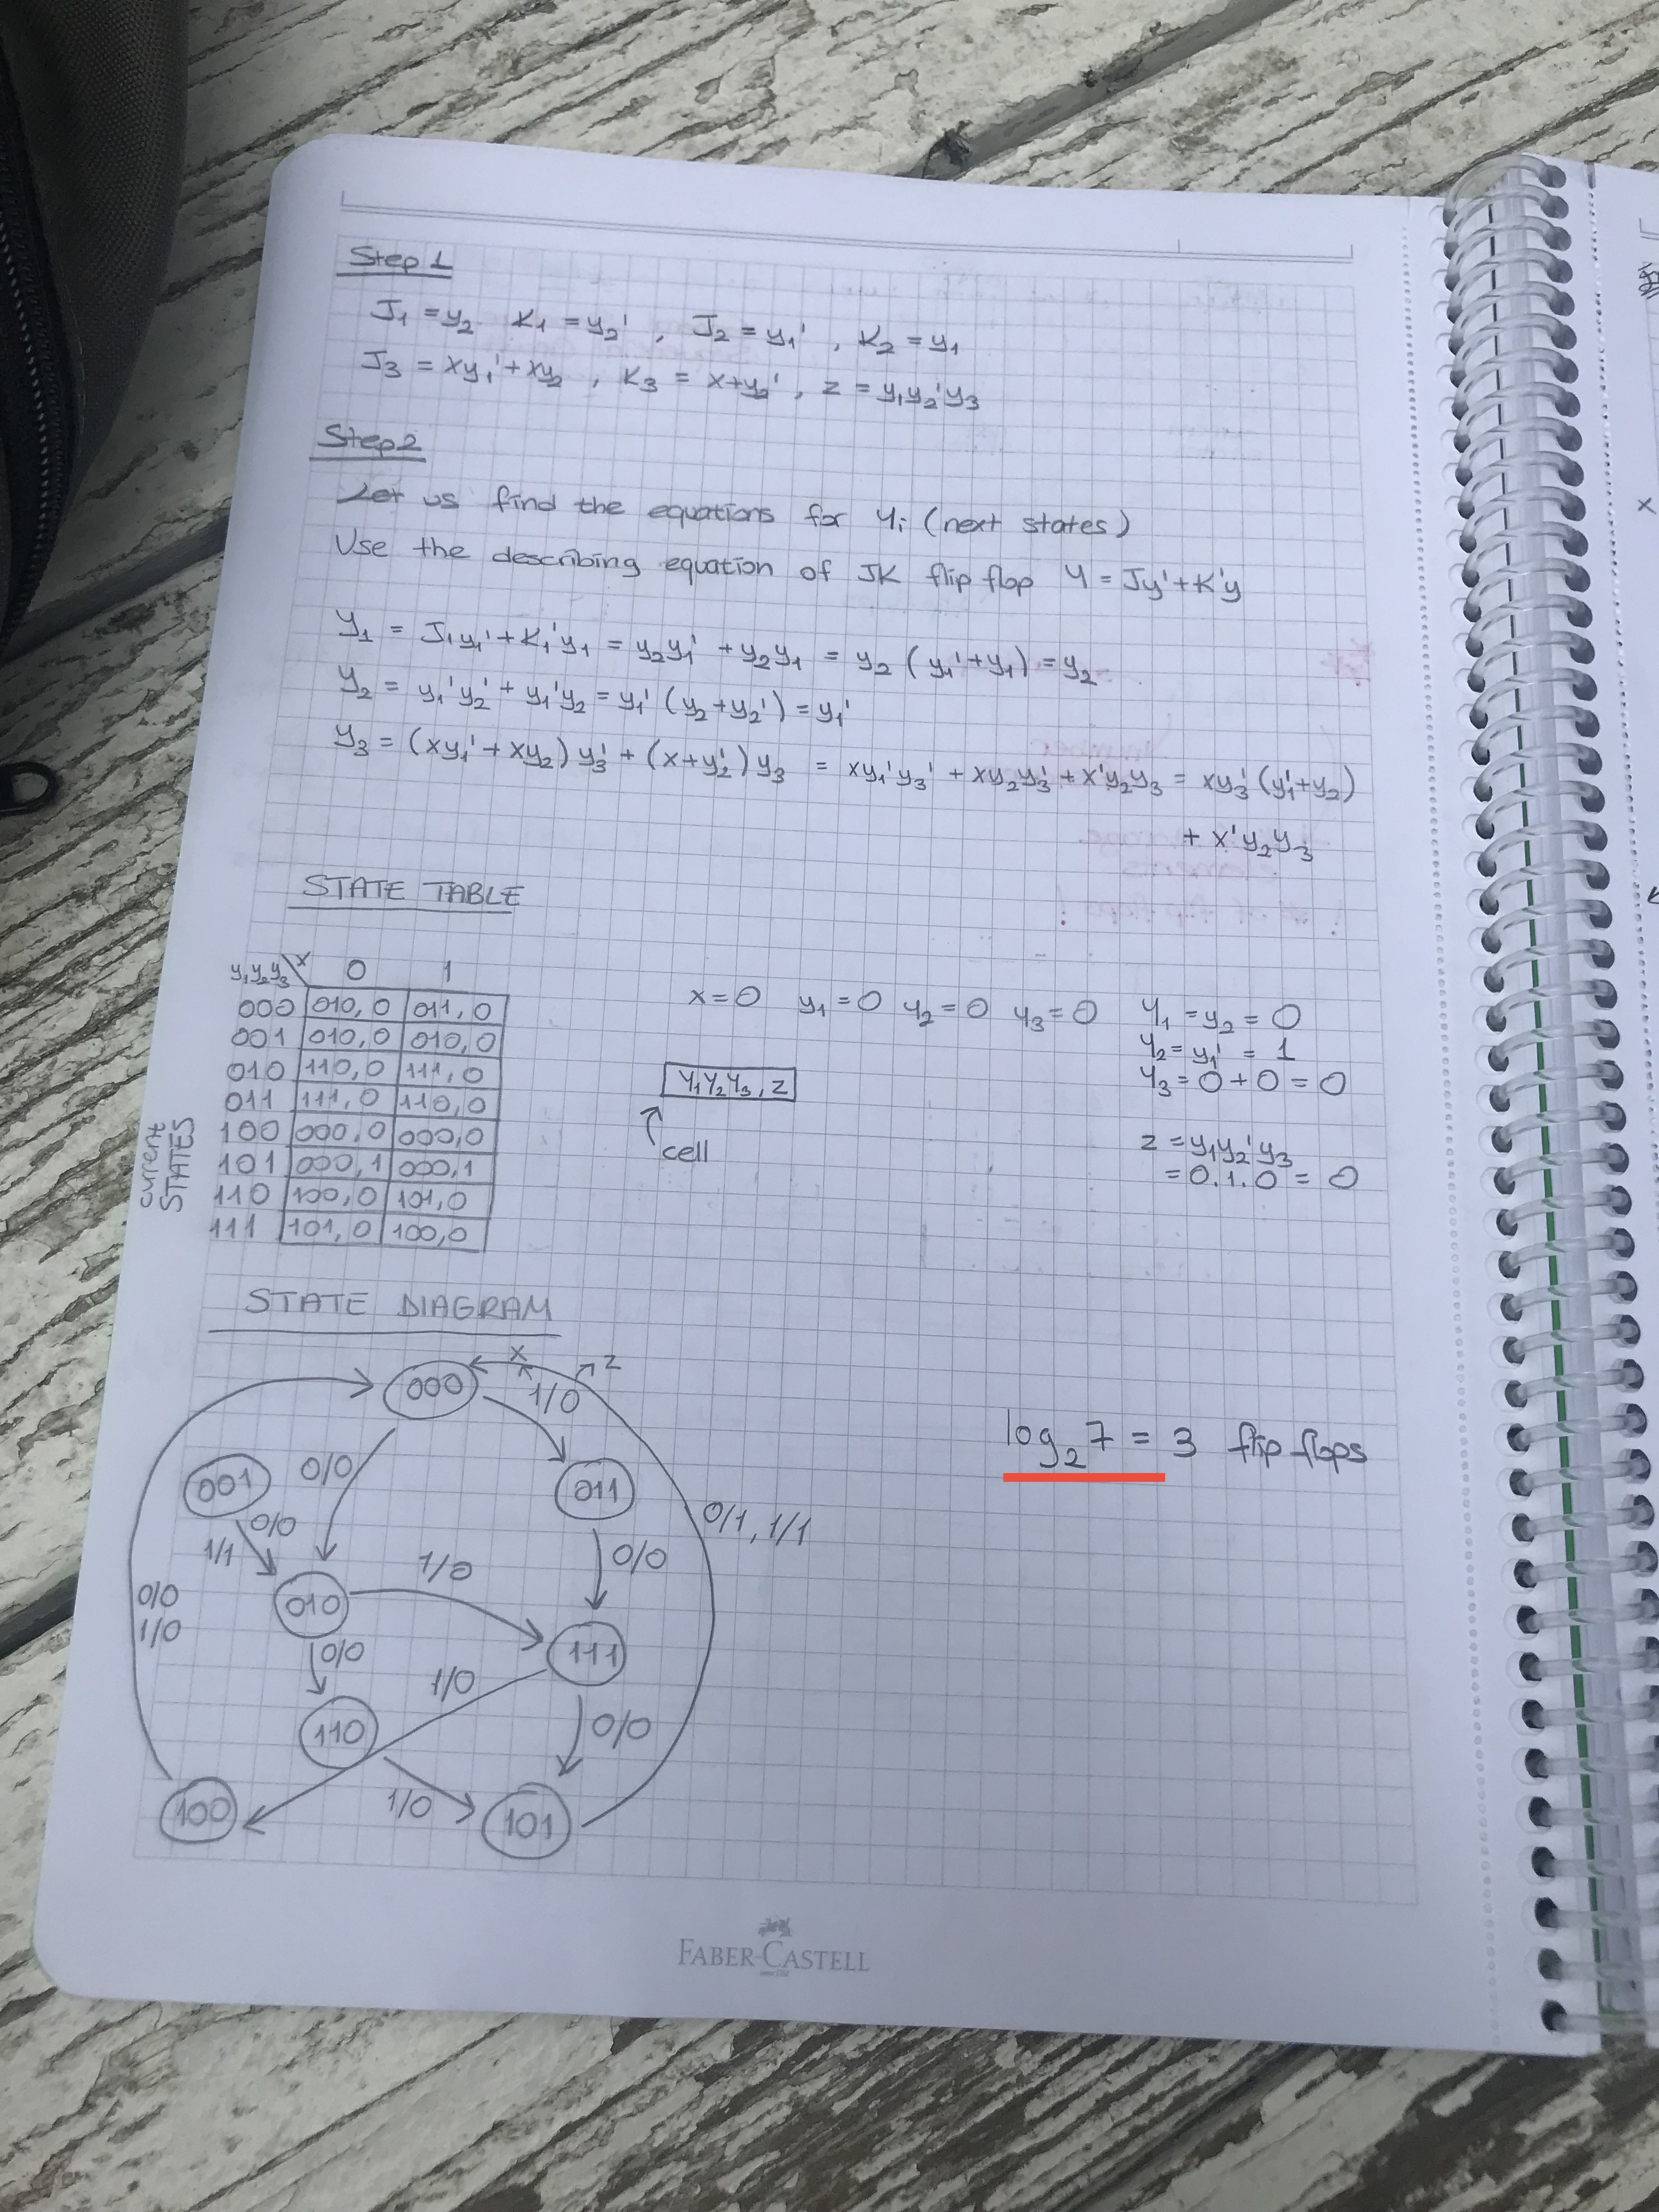 Step 1
J₁ = y₂ K₁ = y₂' , J₂ = y₁' , K₂ = y₁
J₃ = xy₁' + xy₂ , K₃ = x+y₂' , z = y₁y₂'y₃
Step 2
Let us find the equations for Yᵢ (next states)
Use the describing equation of JK flip flop Y = Jy' + K'y
Y₁ = J₁y₁' + K₁'y₁ = y₂y₁' + y₂y₁ = y₂ (y₁' + y₁) = y₂
Y₂ = y₁'y₂' + y₁'y₂ = y₁' (y₂+y₂') = y₁'
Y₃ = (xy₁' + xy₂) y₃' + (x+y₂')' y₃ = xy₁'y₃' + xy₂y₃' + x'y₂y₃ = xy₃' (y₁'+y₂)
+ x'y₂y₃
STATE TABLE
y₁y₂y₃ x 0 1
000 010,0 011,0
001 010,0 010,0
010 110,0 111,0
011 111,0 110,0
100 000,0 000,0
101 000,1 000,1
110 100,0 101,0
111 101,0 100,0
current
STATES
x=0 y₁=0 y₂=0 y₃=0 Y₁ = y₂ = 0
Y₂ = y₁' = 1
Y₃ = 0+0 = 0
Y₁Y₂Y₃, z
cell
z = y₁y₂'y₃
= 0.1.0 = 0
STATE DIAGRAM
x
z
000
1/0
001
0/0
011
0/0
1/1
0/1, 1/1
0/0
010
1/0
0/0
1/0
0/0
111
1/0
110
0/0
100
1/0
101
log₂7 = 3 flip flops
FABER-CASTELL